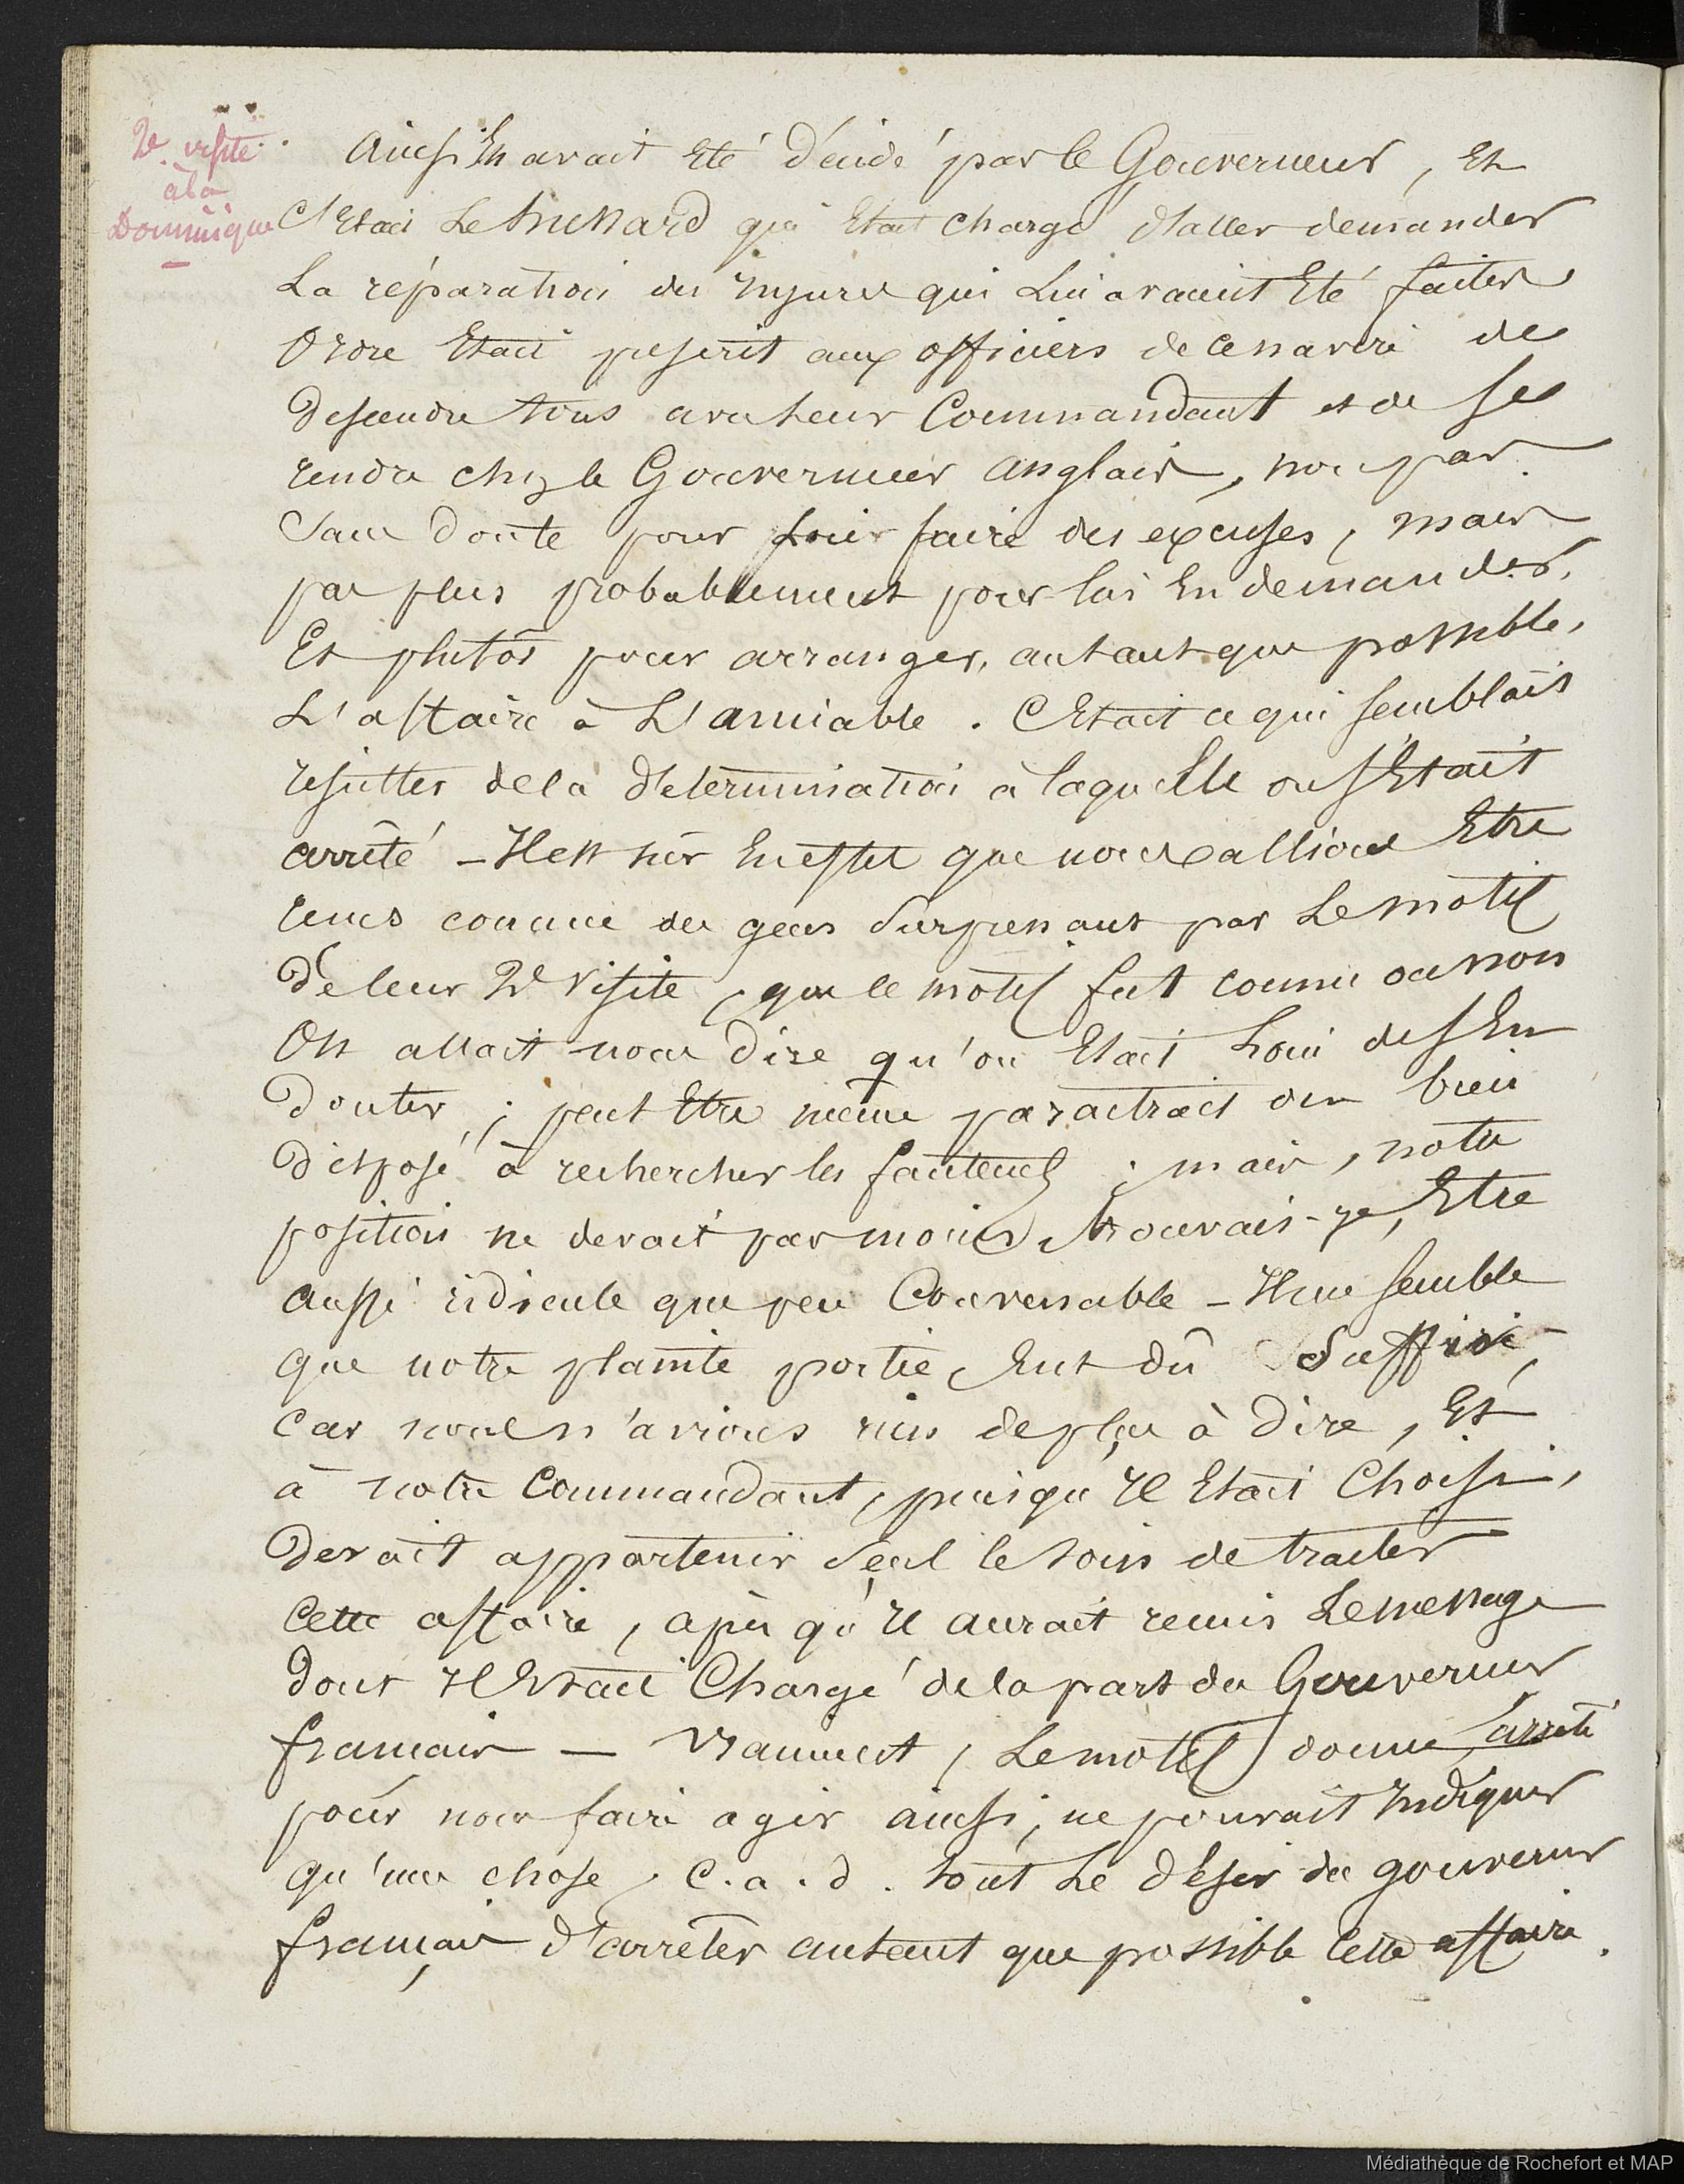 2e visite
à la
Dominique
Ainsi En avait Eté décidé par le Gouverneur, Et
C'Etait Le qui Etait chargé d'aller demander
La réparation des Injures qui Lui avaient Eté faites
Ordre Etait prescrit aux officiers de ce navire de
descendre tous avec leur Commandant et de se
rendre chez le Gouverneur anglais, non pas
sans doute pour faire des excuses, mais
pas plus probablement pour lui En demander,
Et plutôt pour arranger, autant que possible,
L'affaire à L'amiable. C'Etait ce qui semblait
résulter de la détermination à laquelle on s'Etait
arrêté – Il est sûr En effet que nous allions Etre
tenus comme des gens surprenant par Le motif
de leur 2e visite, que le motif fut connu ou non
On allait nous dire qu'on Etait Loin de s'En
douter, ; peut Etre même paraitrait on bien
disposé à rechercher les fauteurs ; mais, notre
position ne devait pas moins, trouvais-je, Etre
aussi ridicule que peu Convenable – Il me semble
que notre plainte portée Eut dû Suffire,
car nous n'avions rien de plus à dire, Et
à notre Commandant, puisqu'Il Etait Choisi,
devait appartenir seul le soin de traiter
Cette affaire, après qu'Il aurait remis Le message
dont Il Etait Chargé de la part du Gouverneur
français — Vraiment, Le motif donné arrêté
pour nous faire agir ainsi, ne pouvait Indiquer
qu'une chose, c.a.d. tout Le désir du gouverneur
français d'arrêter autant que possible cette affaire.
Médiathèque de Rochefort et MAP